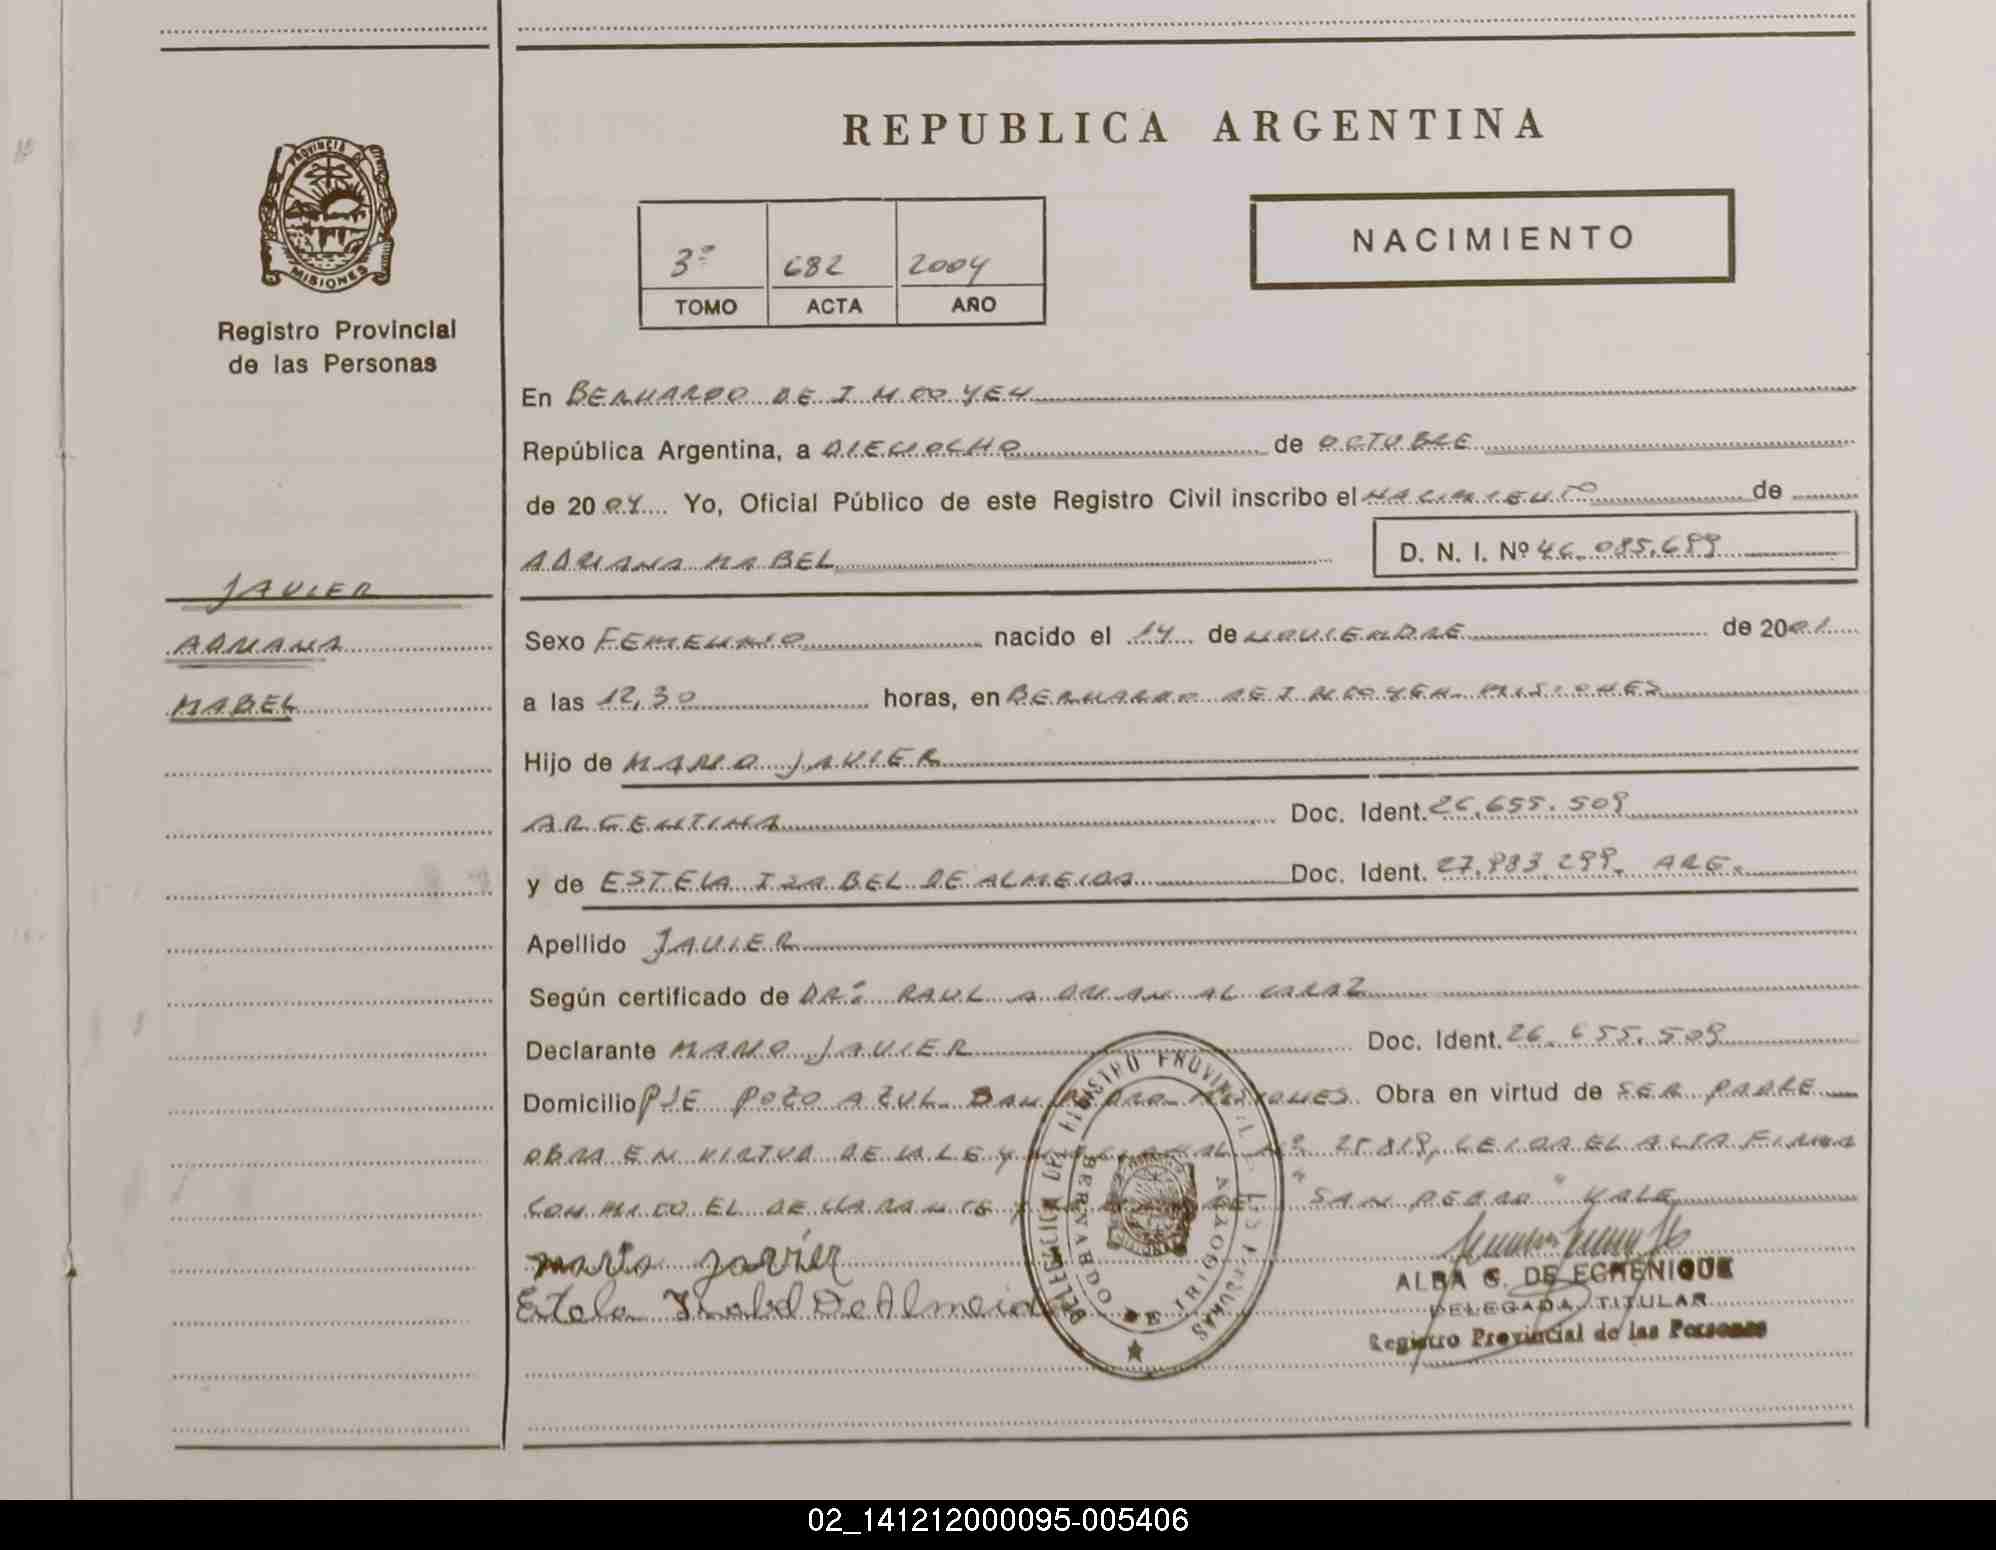 PROVINCIA DE
MISIONES
Registro Provincial
de las Personas
JAVIER
ADRIANA
MABEL
REPUBLICA ARGENTINA
NACIMIENTO
3º 682 2004
TOMO ACTA AÑO
En BERNARDO DE IRIGOYEN
República Argentina, a DIECIOCHO de OCTUBRE
de 2004 Yo, Oficial Público de este Registro Civil inscribo el NACIMIENTO de
ADRIANA MABEL D. N. I. Nº 46.085.699
Sexo FEMENINO nacido el 14 de NOVIEMBRE de 2001
a las 12,30 horas, en BERNARDO DE IRIGOYEN MISIONES
Hijo de MARIO JAVIER
ARGENTINA Doc. Ident. 26.655.509
y de ESTELA IZABEL DE ALMEIDA Doc. Ident. 27.983.299 ARG.
Apellido JAVIER
Según certificado de DR: RAUL ADRIAN ALCARAZ
Declarante MARIO JAVIER Doc. Ident. 26.655.509
Domicilio PJE POZO AZUL SAN PEDRO MISIONES Obra en virtud de SER PADRE
OBRA EN VIRTUD DE LA LEY NACIONAL Nº 25.819, LEIDA EL ACTA FIRMA
CONMIGO EL DECLARANTE Y "SAN PEDRO" VALE
mario javier
Estela Izabel De Almeida
DELEGACION DEL REGISTRO PROVINCIAL DE LAS PERSONAS
BERNARDO DE IRIGOYEN
ALBA G. DE ECHENIQUE
DELEGADA TITULAR
Registro Provincial de las Personas
02_141212000095-005406